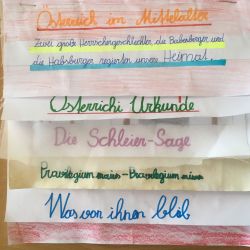 Österreich im Mittelalter
Zwei große Herrschergeschlechter, die Babenberger und
die Habsburger regierten unsere Heimat.
Ostarrichi Urkunde
Die Schleier-Sage
Pravilegium maius-Pravilegium minus
Was von ihnen blieb